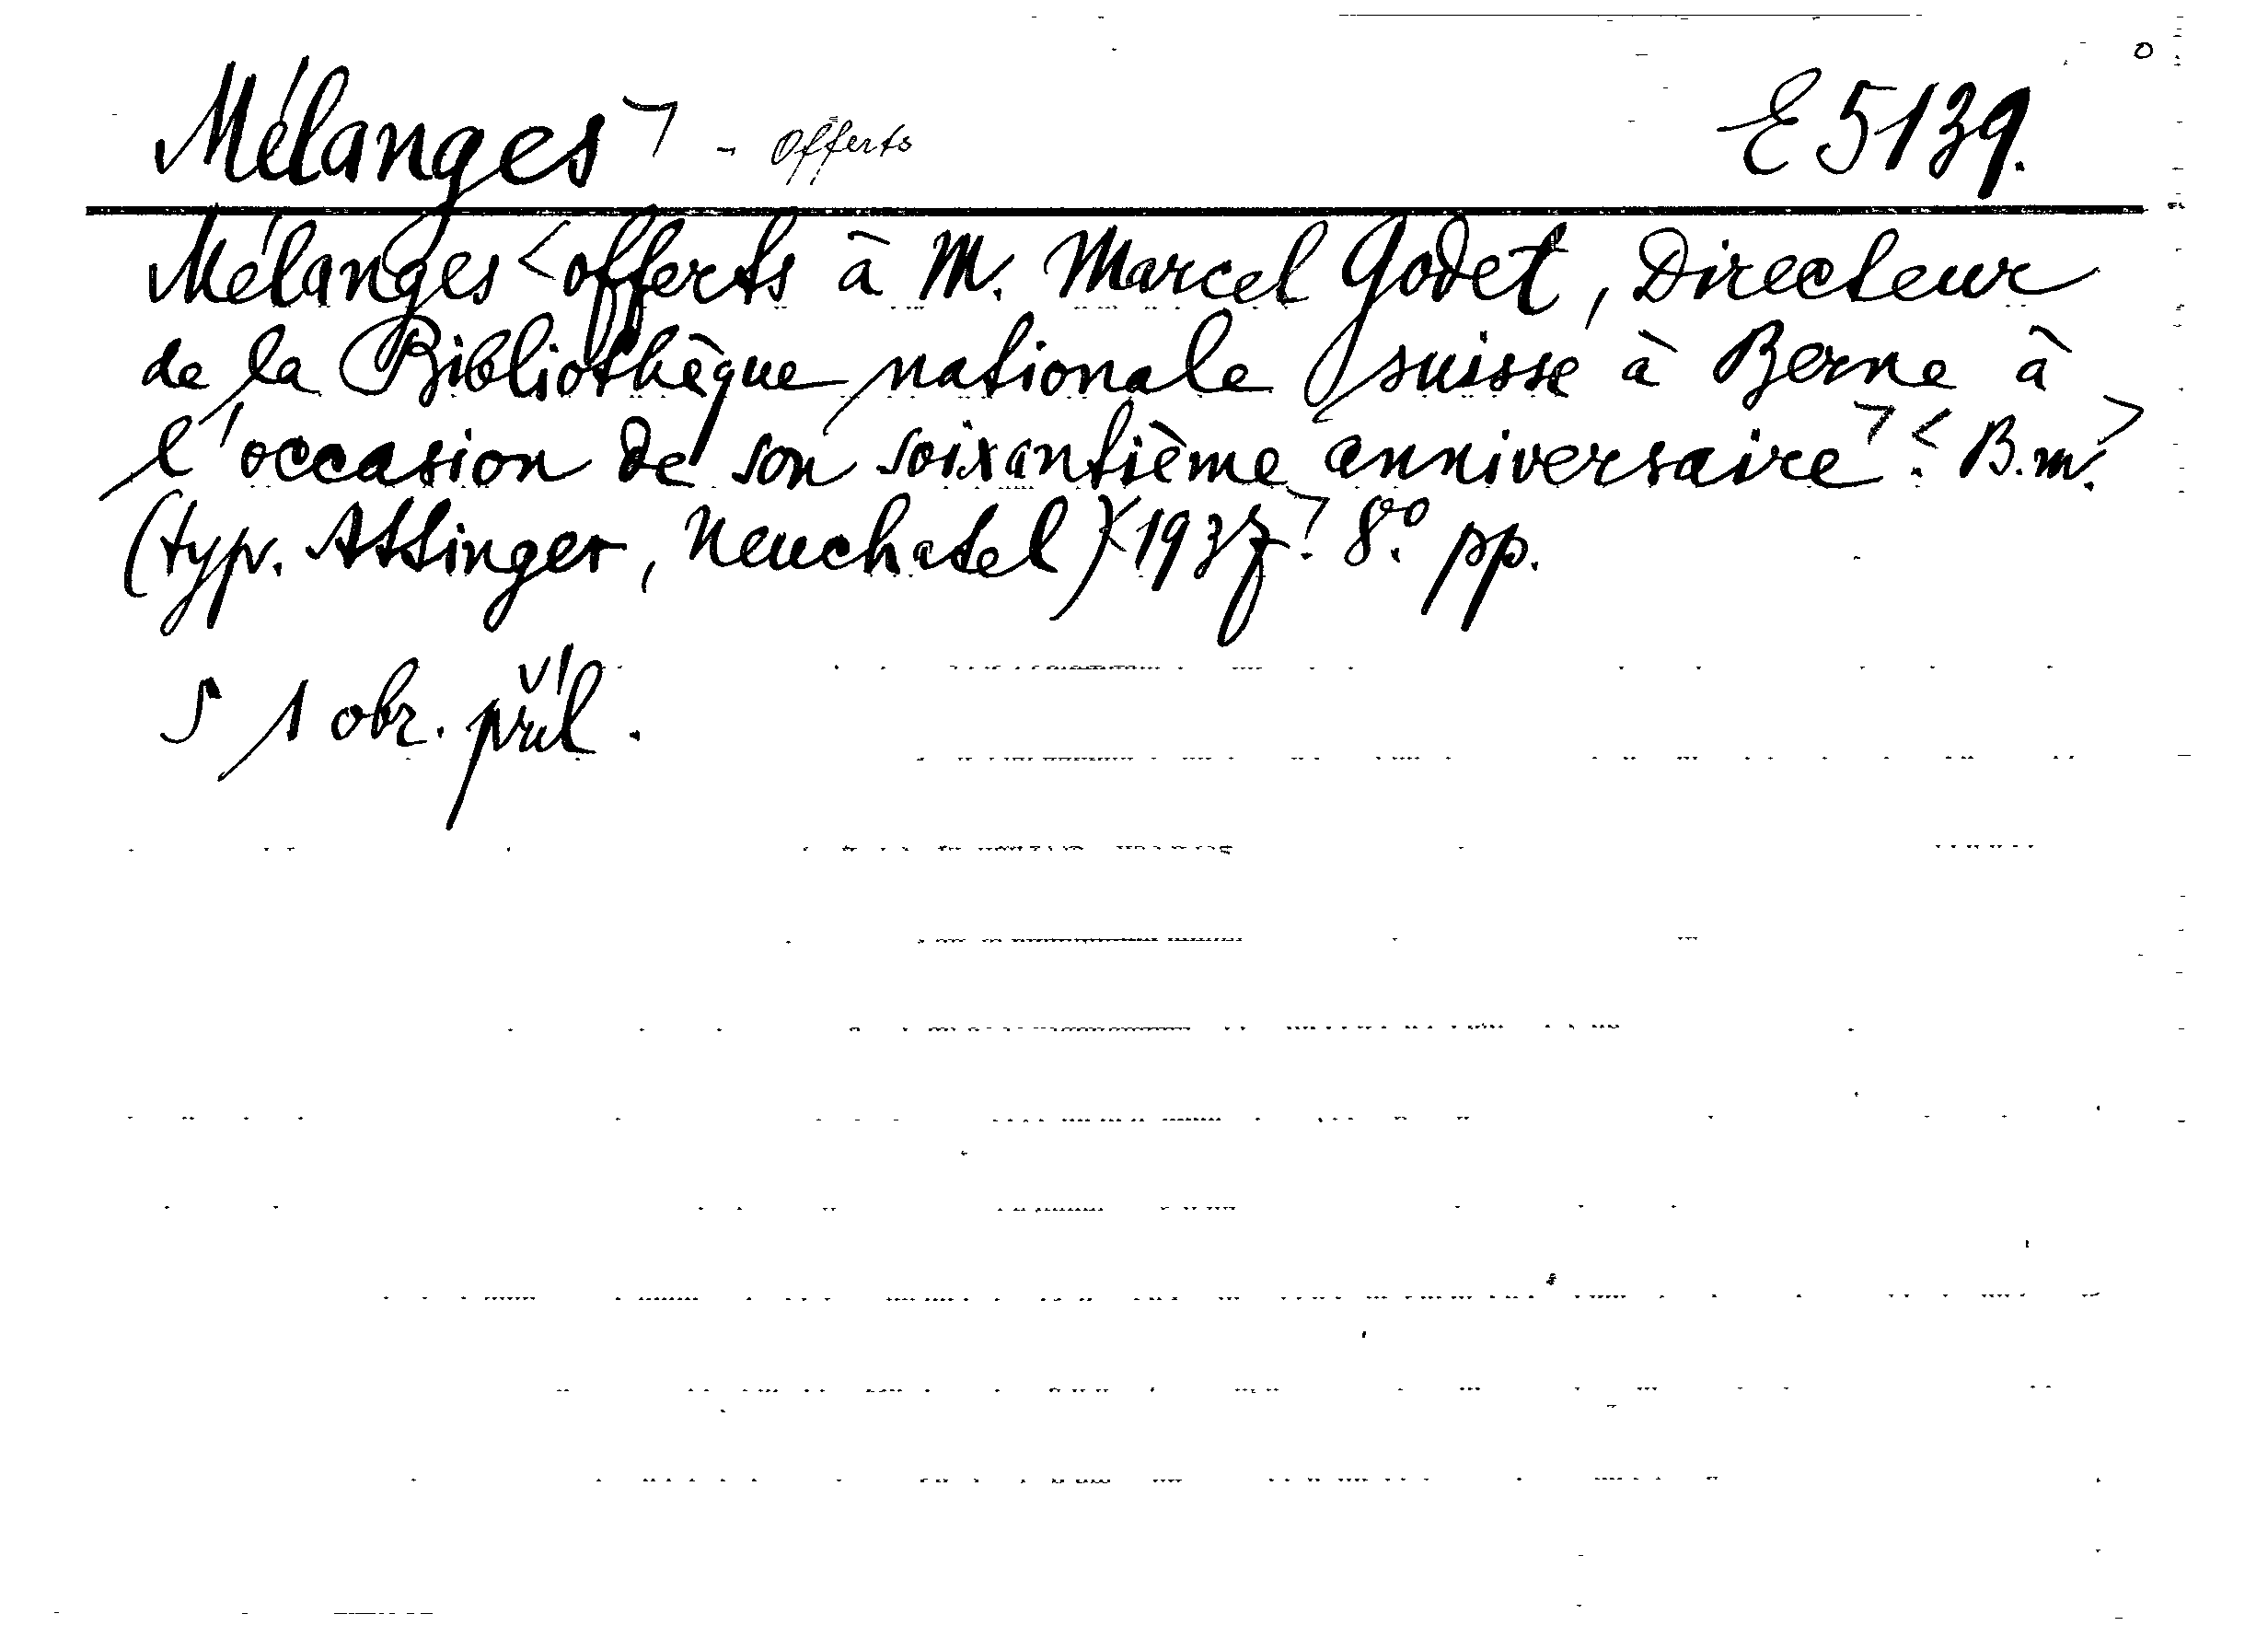 Mélanges⌝ - Offerts E 5139.
Mélanges <offerts à M. Marcel Godet, Directeur
de la Bibliothèque nationale suisse à Berne à
l'occasion de son soixantième anniversaire⌝. < B.m.>
(typ. Attinger, Neuchatel) <1937⌝. 8.° pp.
S 1 obr. příl.